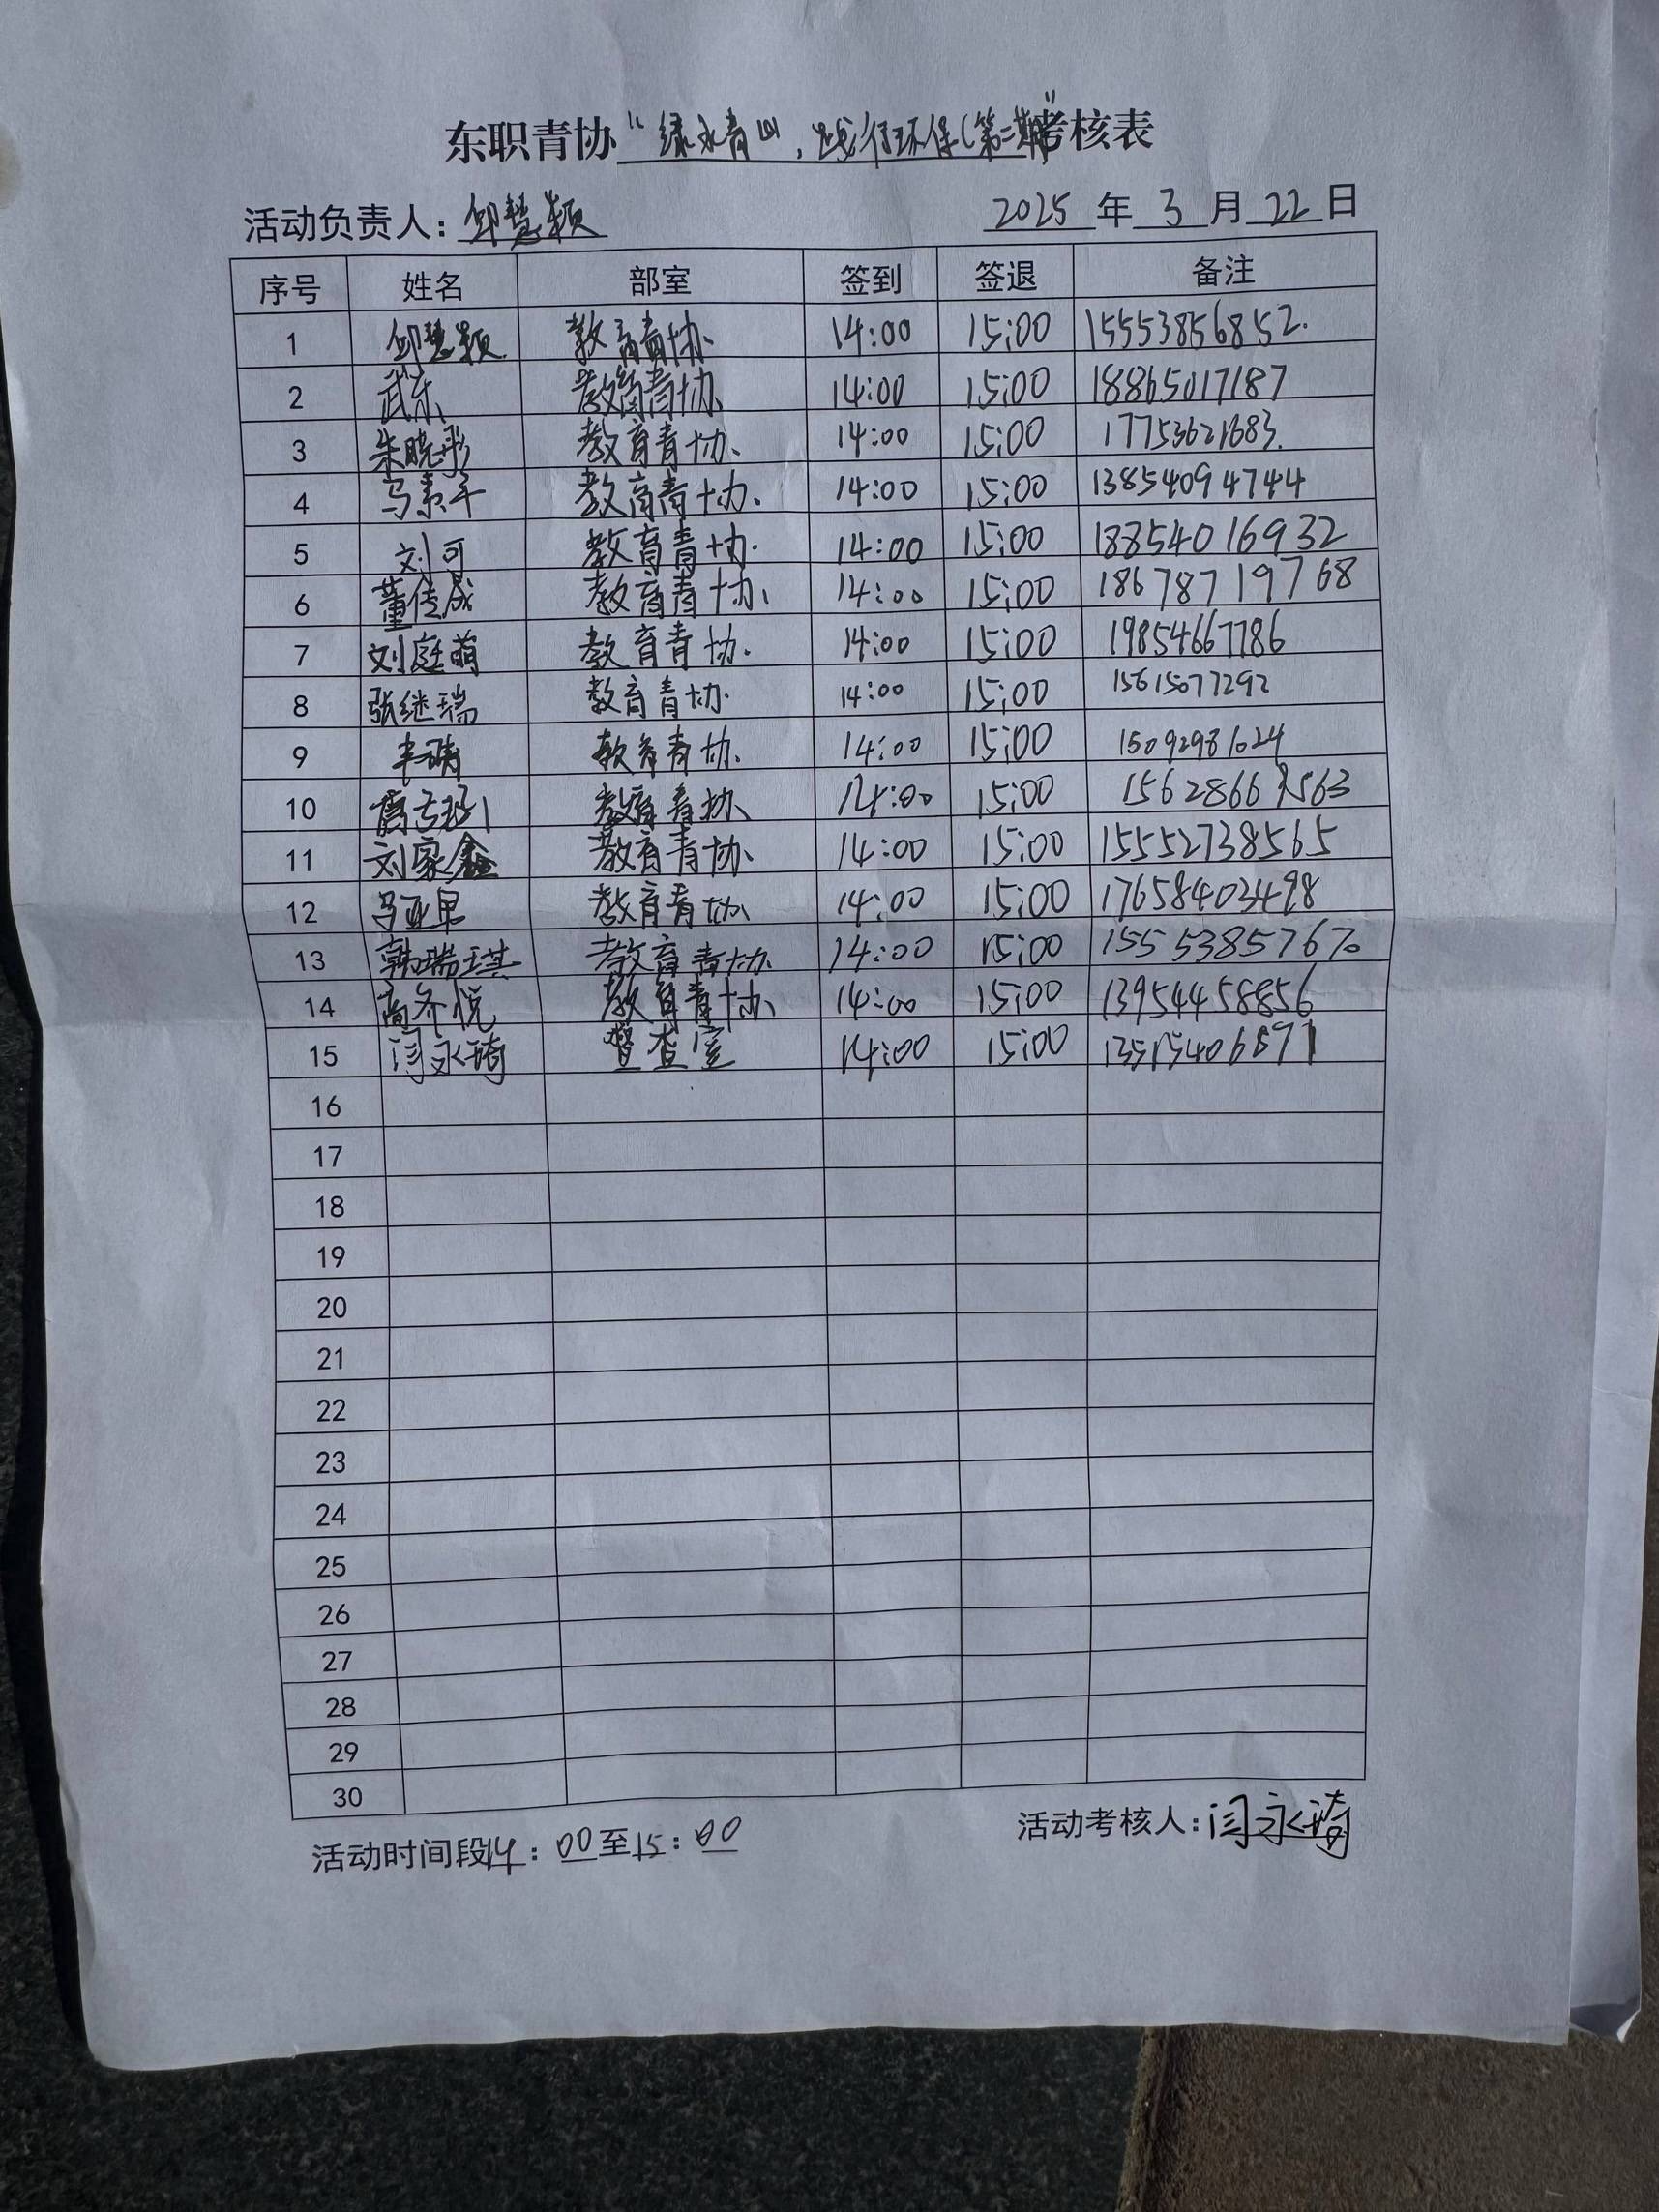 东职青协“绿水青山，践行环保(第二期)”考核表
活动负责人：邱慧颖 2025 年 3 月 22 日
序号 姓名 部室 签到 签退 备注
1 邱慧颖 教育青协 14:00 15:00 15553856852.
2 武东 教育青协 14:00 15:00 18865017187
3 朱晓彤 教育青协 14:00 15:00 17753621683.
4 马素平 教育青协 14:00 15:00 13854094744
5 刘可 教育青协 14:00 15:00 18854016932
6 董传成 教育青协 14:00 15:00 18678719768
7 刘庭萌 教育青协 14:00 15:00 19854667786
8 张继瑞 教育青协 14:00 15:00 15615077292
9 教育青协 14:00 15:00 15092981624
10 教育青协 14:00 15:00
11 刘家鑫 教育青协 14:00 15:00 15552738565
12 教育青协 14:00 15:00 17658403498
13 韩瑞琪 教育青协 14:00 15:00 15553857670
14 高冬悦 教育青协 14:00 15:00 13954458856
15 闫永琦 督查室 14:00 15:00
16
17
18
19
20
21
22
23
24
25
26
27
28
29
30
活动时间段14：00至15：00 活动考核人：闫永琦